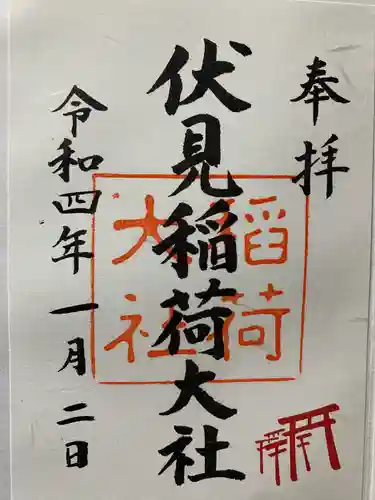 奉拝
伏見稲荷大社
稲荷
大社
令和四年一月二日